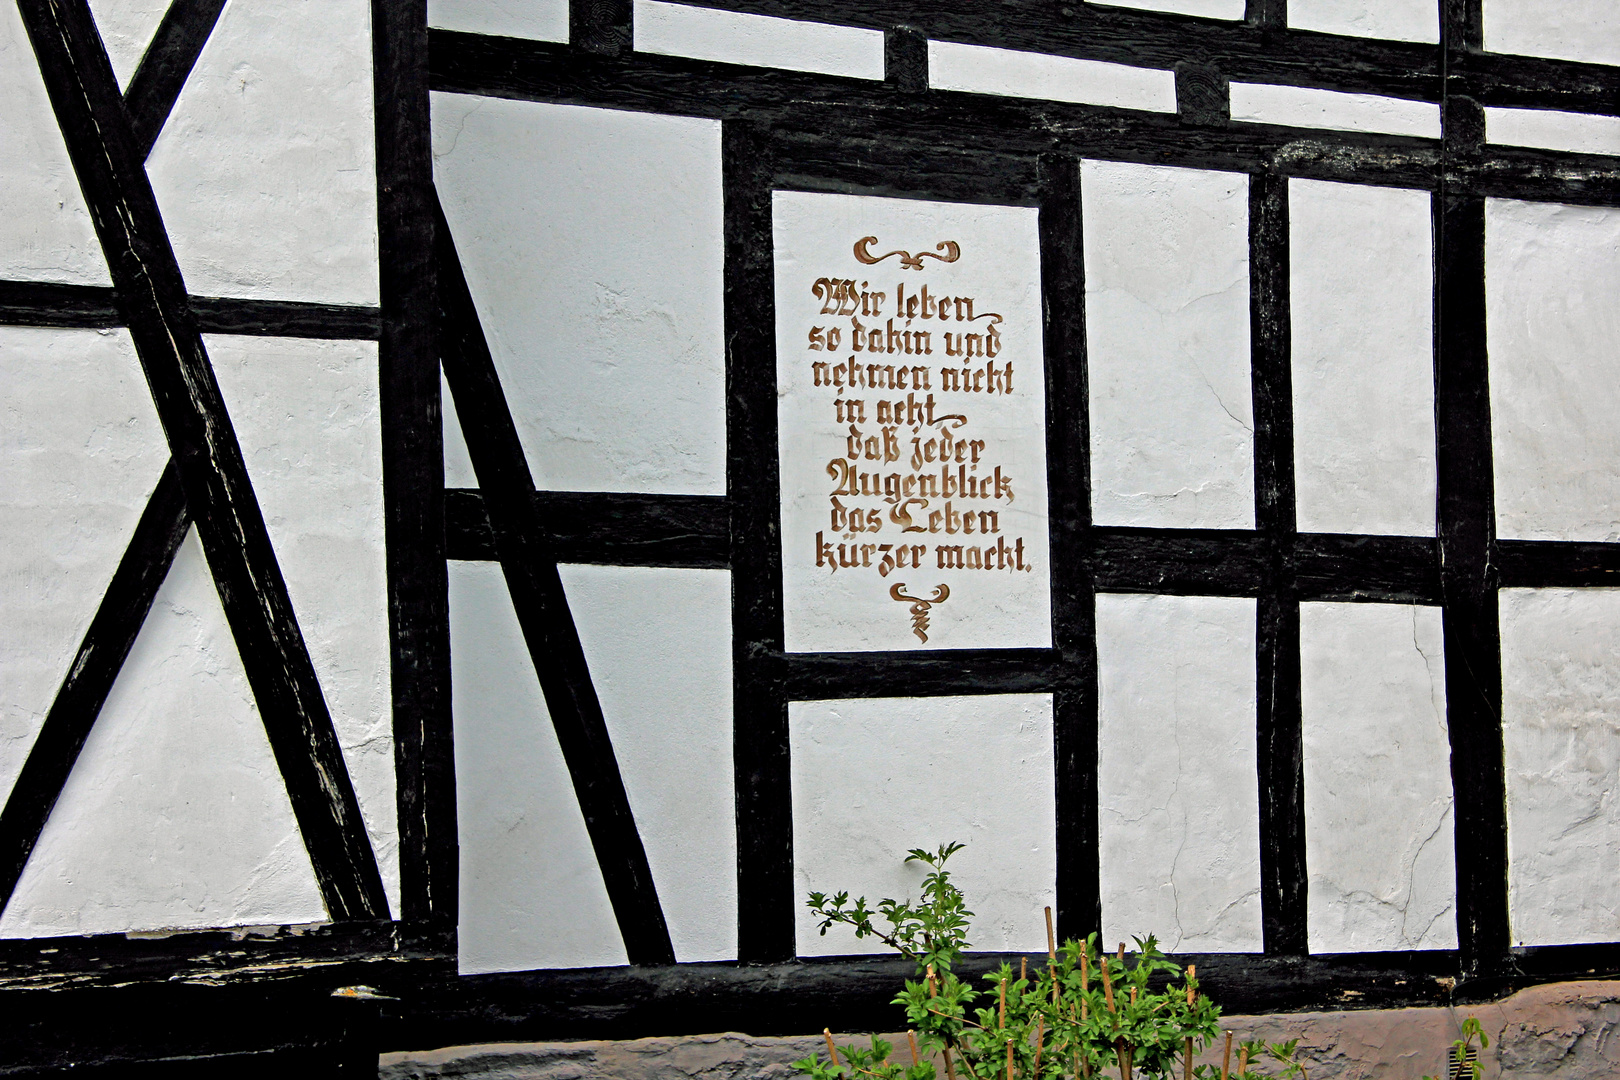 Wir leben
so dahin und
nehmen nicht
in acht
daß jeder
Augenblick
das Leben
kürzer macht.